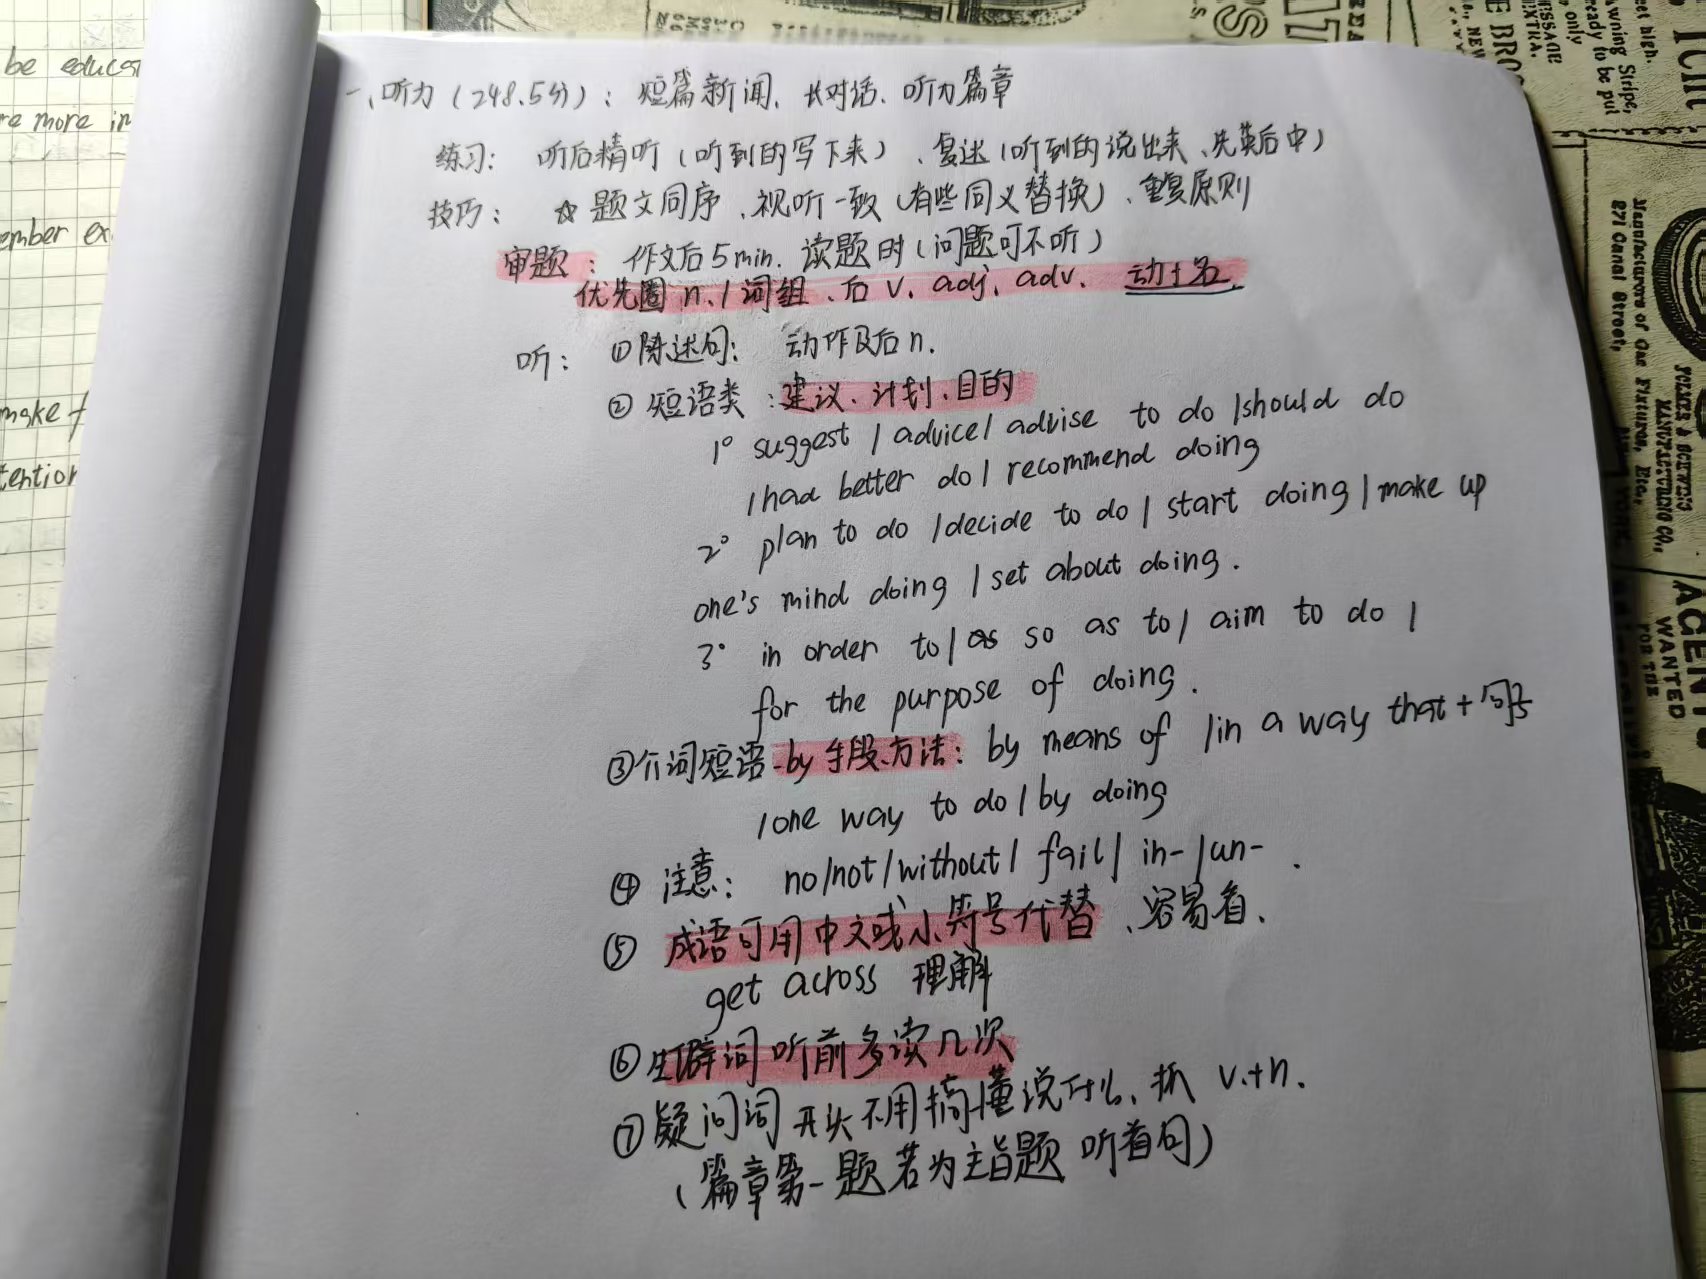 be educat
re more in
ember ex
make f
tention
一、听力（248.5分）：短篇新闻、长对话、听力篇章
练习：听后精听（听到的写下来）、复述（听到的说出来、先英后中）
技巧：☆题文同序、视听一致（有些同义替换）、重复原则
审题：作文后5min. 读题时（问题可不听）
优先圈 n. / 词组、后 v. adj. adv. 动+名.
听：①陈述句：动作及后n.
②短语类：建议、计划、目的
1° suggest / advice / advise to do / should do
/ had better do / recommend doing
2° plan to do / decide to do / start doing / make up
one's mind doing / set about doing.
3° in order to / so as to / aim to do /
for the purpose of doing.
③介词短语-by手段、方法：by means of / in a way that + 句子
/ one way to do / by doing
④注意：no/not/without/ fail/ in-/un- .
⑤成语可用中文或小符号代替、容易看、
get across 理解
⑥生僻词听前多读几次
⑦疑问词开头不用搞懂说什么、抓 v.+n.
（篇章第一题若为主旨题 听首句）
AGENT
WANTED
FOR THE
Manufacturers of Gas Fixtures, Etc,
271 Canal Street,